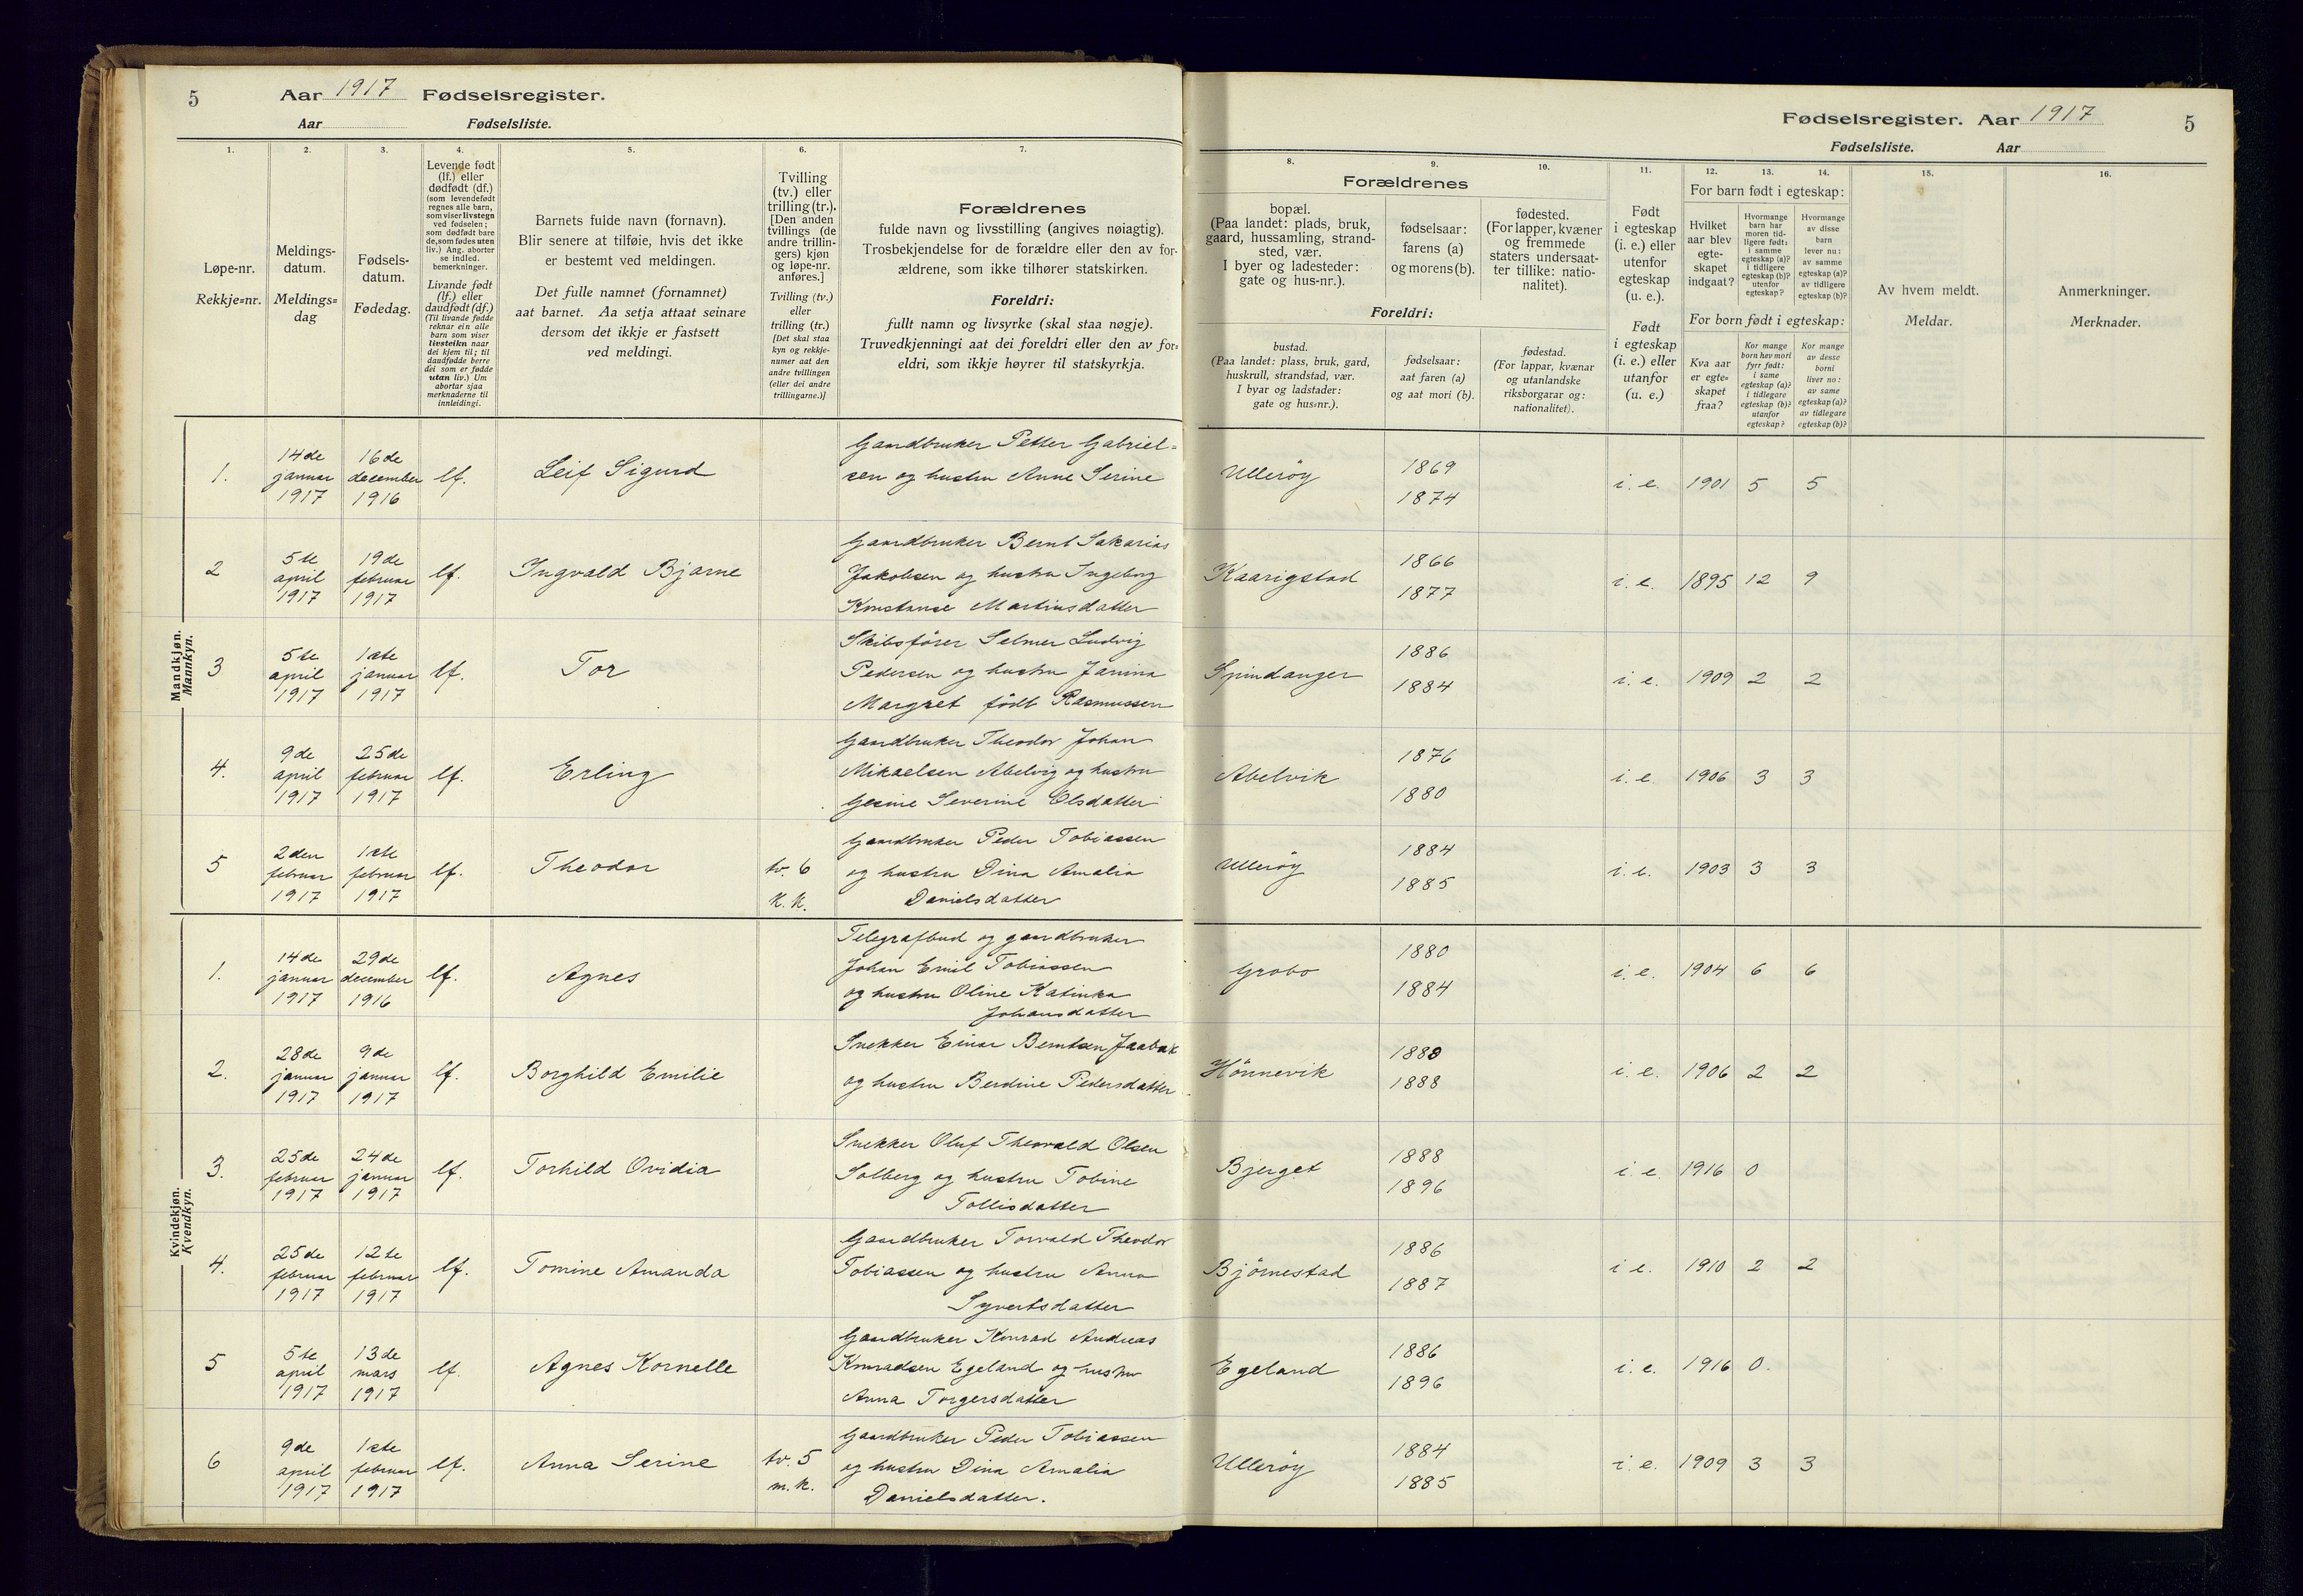 5 Aar 1917 Fødselsregister.
Aar Fødselsliste.
1. 2. 3. 4. 5. 6. 7.
Løpe-nr.
Rekkje=nr.
Meldings-
datum.
Meldings=
dag
Fødsels-
datum.
Fødedag.
Levende født
(lf.) eller
dødfødt (df.)
(som levendefødt
regnes alle barn,
som viser livstegn
ved fødselen;
som dødfødt bare
de, som fødes uten
liv.) Ang. aborter
se indled.
bemerkninger.
Livande født
(lf.) eller
daudfødt (df.)
(Til livande fødde
reknar ein alle
barn som viser
livsteikn naar
dei kjem til; til
daudfødde berre
dei som er fødde
utan liv.) Um
abortar sjaa
merknaderne til
innleidingi.
Barnets fulde navn (fornavn).
Blir senere at tilføie, hvis det ikke
er bestemt ved meldingen.
Det fulle namnet (fornamnet)
aat barnet. Aa setja attaat seinare
dersom det ikkje er fastsett
ved meldingi.
Tvilling
(tv.) eller
trilling (tr.).
[Den anden
tvillings (de
andre trillin-
gers) kjøn
og løpe-nr.
anføres.]
Tvilling (tv.)
eller
trilling (tr.)
[Det skal staa
kyn og rekkje-
numer aat den
andre tvillingen
(eller dei andre
trillingarne.)]
Forældrenes
fulde navn og livsstilling (angives nøiagtig).
Trosbekjendelse for de forældre eller den av for-
ældrene, som ikke tilhører statskirken.
Foreldri:
fullt namn og livsyrke (skal staa nøgje).
Truvedkjenningi aat dei foreldri eller den av for=
eldri, som ikkje høyrer til statskyrkja.
Mandkjøn.
Mannkyn.
1.
14de
januar
1917
16de
december
1916
lf.
Leif Sigurd
Gaardbruker Petter Gabriel=
sen og hustru Anne Serine
2
5te
april
1917
19de
februar
1917
lf.
Ingvald Bjarne
Gaardbruker Bernt Sakarias
Jakobsen og hustru Ingeborg
Konstanse Martinsdatter
3
5te
april
1917
1ste
januar
1917
lf.
Tor
Skibsfører Selmer Ludvig
Pedersen og hustru Janina
Margret födt Rasmussen
4.
9de
april
1917
25de
februar
1917
lf.
Erling
Gaardbruker Theodor Johan
Mikaelsen Abelvig og hustru
Gesine Severine Olsdatter
5
2den
februar
1917
1ste
februar
1917
lf.
Theodor
tv. 6
k. k.
Gaardbruker Peder Tobiassen
og hustru Dina Amalia
Danielsdatter
Kvindekjøn.
Kvendkyn.
1.
14de
januar
1917
29de
december
1916
lf.
Agnes
Telegrafbud og gaardbruker
Johan Emil Tobiassen
og hustru Oline Katinka
Johansdatter
2.
28de
januar
1917
9de
januar
1917
lf.
Borghild Emilie
Snekker Einar Berntsen Jaabæk
og hustru Berdine Pedersdatter
3.
25de
februar
1917
24de
januar
1917
lf.
Torhild Ovidia
Snekker Oluf Theovald Olsen
Solberg og hustru Tobine
Tollisdatter
4.
25de
februar
1917
12te
februar
1917
lf.
Tomine Amanda
Gaardbruker Torvald Theodor
Tobiassen og hustru Anna
Syvertsdatter
5
5te
april
1917
13de
mars
1917
lf.
Agnes Kornelle
Gaardbruker Konrad Andreas
Konradsen Egeland og hustru
Anna Torgersdatter
6
9de
april
1917
1ste
februar
1917
lf.
Anna Serine
tv. 5
m. k.
Gaardbruker Peder Tobiassen
og hustru Dina Amalia
Danielsdatter.
Fødselsregister. Aar 1917 5
Fødselsliste. Aar
8. 9. 10. 11. 12. 13. 14. 15. 16.
Forældrenes
bopæl.
(Paa landet: plads, bruk,
gaard, hussamling, strand-
sted, vær.
I byer og ladesteder:
gate og hus-nr.).
fødselsaar:
farens (a)
og morens (b).
fødested.
(For lapper, kvæner
og fremmede
staters undersaat-
ter tillike: natio-
nalitet).
Foreldri:
bustad.
(Paa landet: plass, bruk, gard,
huskrull, strandstad, vær.
I byar og ladstader:
gate og hus=nr.).
fødselsaar:
aat faren (a)
og aat mori (b).
fødestad.
(For lappar, kvænar
og utanlandske
riksborgarar og:
nationalitet).
Født
i egteskap
(i. e.) eller
utenfor
egteskap
(u. e.).
Født
i egteskap
(i. e.) eller
utanfor
(u. e.)
For barn født i egteskap:
Hvilket
aar blev
egte-
skapet
indgaat?
Hvormange
barn har
moren tid-
ligere født:
i samme
egteskap (a)?
i tidligere
egteskap (b)?
utenfor
egteskap?
Hvormange
av disse
barn
lever nu:
av samme
egteskap (a)?
av tidligere
egteskap (b)?
For born født i egteskap:
Kva aar
er egte=
skapet
fraa?
Kor mange
born hev mori
fyrr født:
i same
egteskap (a)?
i tidlegare
egteskap (b)?
utanfor
egteskap?
Kor mange
av desse
borni
liver no:
av same
egteskap (a)?
av tidlegare
egteskap (b)?
Av hvem meldt.
Meldar.
Anmerkninger.
Merknader.
Ulleröy
1869
1874
i. e. 1901 5 5
Kaarigstad
1866
1877
i. e. 1895 12 9
Spindanger
1886
1884
i. e. 1909 2 2
Abelvik
1876
1880
i. e. 1906 3 3
Ulleröy
1884
1885
i. e. 1903 3 3
Grobo
1880
1884
i. e. 1904 6 6
Hönnevik
1880
1888
i. e. 1906 2 2
Bjerget
1888
1896
i e. 1916 0
Björnestad
1886
1887
i e. 1910 2 2
Egeland
1886
1896
i. e. 1916 0.
Ulleröy
1884
1885
i e. 1909 3 3